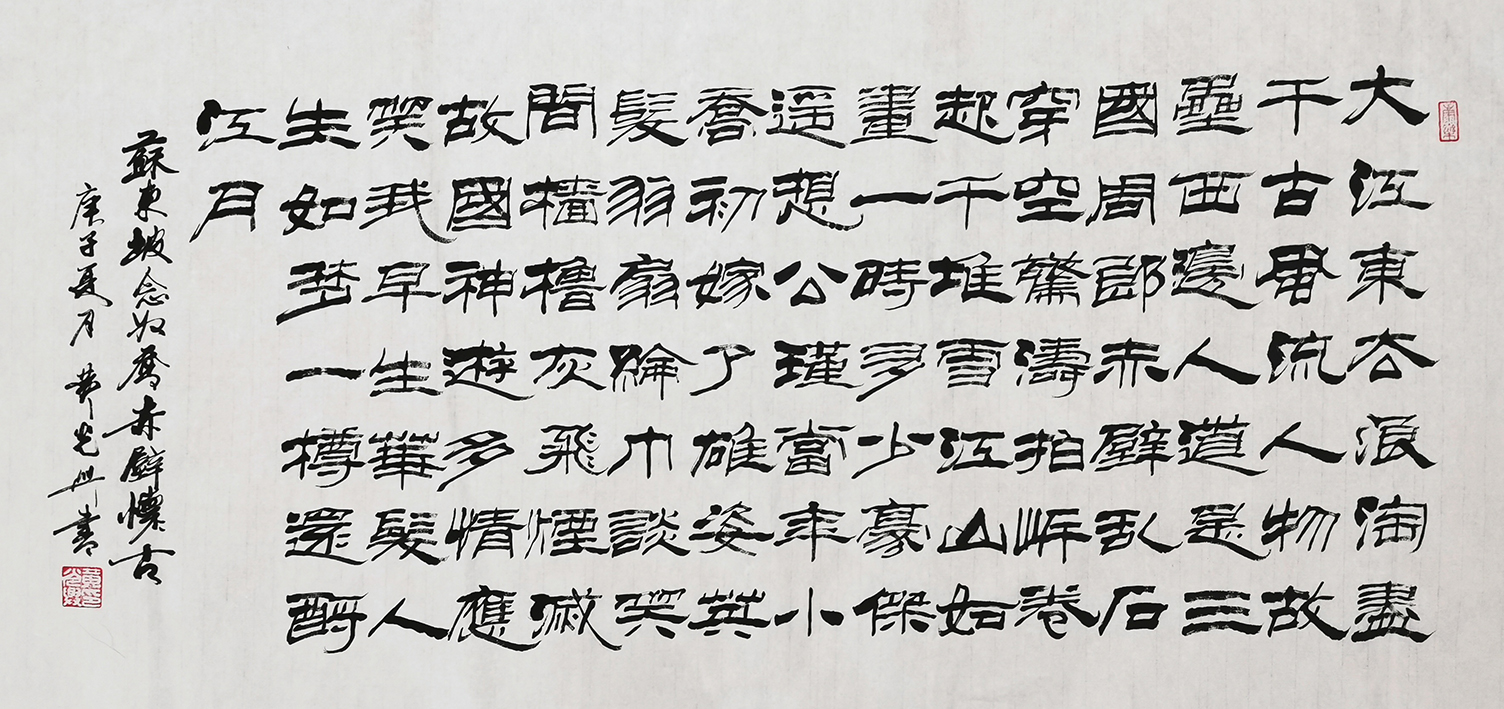 大江東去浪淘盡
千古風流人物故
壘西邊人道是三
國周郎赤壁乱石
穿空驚濤拍岸卷
起千堆雪江山如
畫一時多少豪傑
遥想公瑾當年小
喬初嫁了雄姿英
髮羽扇綸巾談笑
間檣櫓灰飛煙滅
故國神遊多情應
笑我早生華髮人
生如梦一樽還酹
江月
蘇東坡念奴嬌赤壁懷古
庚子夏月黄光興書